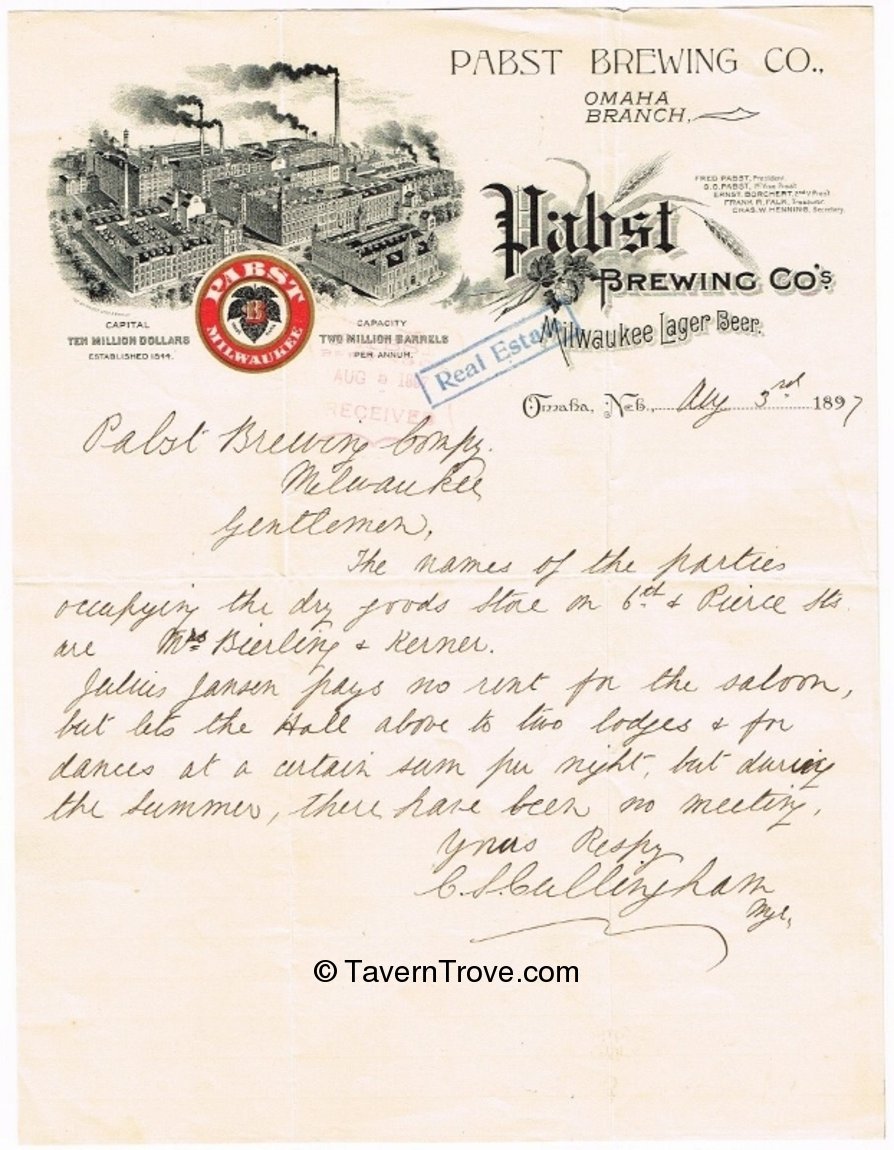 PABST BREWING CO.,
OMAHA
BRANCH,
FRED PABST, President.
G. G. PABST, 1st Vice Prest.
ERNST BORCHERT, 2nd V. Prest.
FRANK R. FALK, Treasurer.
CHAS. W. HENNING, Secretary.
Pabst
BREWING CO'S
Milwaukee Lager Beer.
PABST
B
MILWAUKEE
CAPITAL
TEN MILLION DOLLARS
ESTABLISHED 1844.
CAPACITY
TWO MILLION BARRELS
PER ANNUM.
Real Estate
AUG 1897
RECEIVED
Omaha, Neb., Aug 3rd 1897
Pabst Brewing Compy.
Milwaukee
Gentlemen,
The names of the parties
occupying the dry goods store on 6th & Pierce Sts.
are Mrs Bierling & Kerner.
Julius Jansen pays no rent for the saloon,
but lets the Hall above to two lodges & for
dances at a certain sum per night, but during
the summer, there have been no meeting,
Yours Respy
C. S. Cullingham
Mgr,
© TavernTrove.com